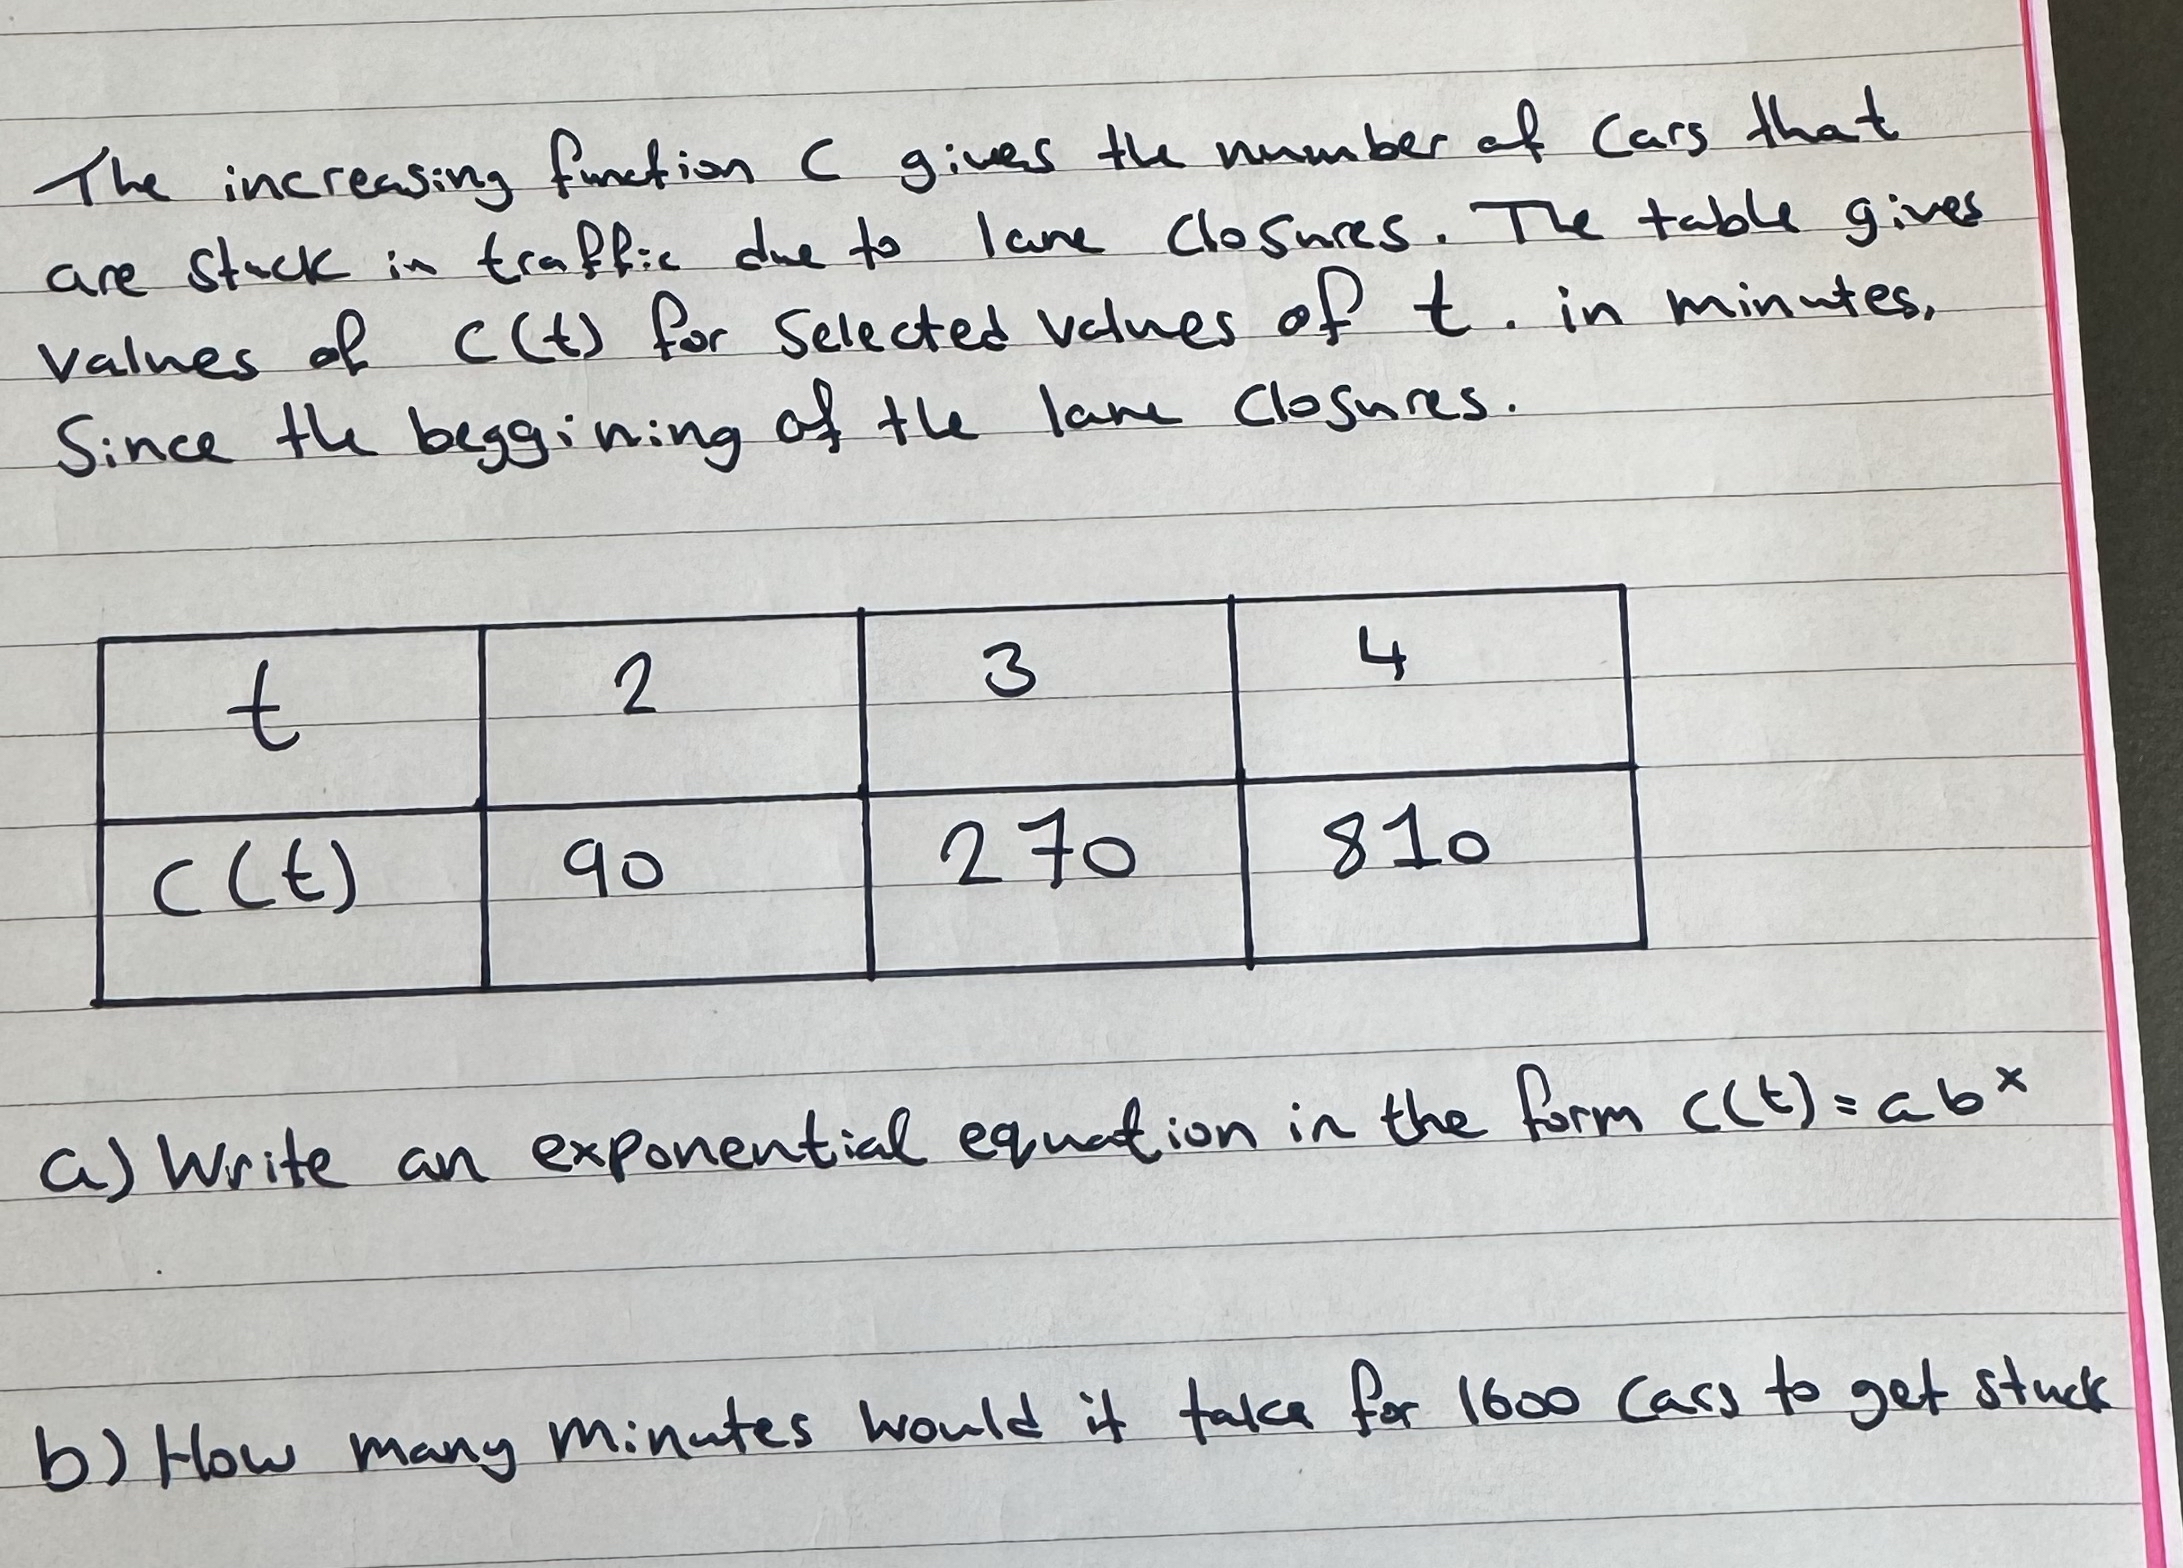 The increasing function C gives the number of Cars that
are stuck in traffic due to lane closures. The table gives
values of C(t) for selected values of t. in minutes,
Since the beggining of the lane closures.
t 2 3 4
C(t) 90 270 810
a) Write an exponential equation in the form C(t) = ab^x
b) How many minutes would it take for 1600 Cars to get stuck